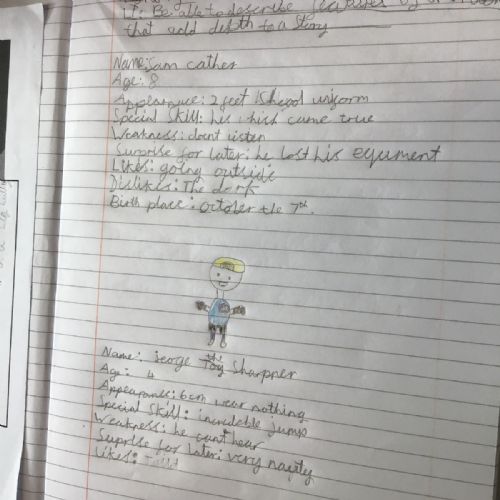 l.t: Be able to describe
that add depth to a story
Name: sam cather
Age: 8
Appearance: 2 feet School uniform
Special Skill: his whish came true
Weakness: doent listen
Surprise for later: he lost his equment
Likes: going outside
Dislikes: The dark
Birth place: october the 7th.
Name: George the Sharpner
Age: 4
Appearance: 6cm wear nothing
Special Skill: increduble jump
Weakness: he cant hear
Suprise for later: very nauty
Likes: